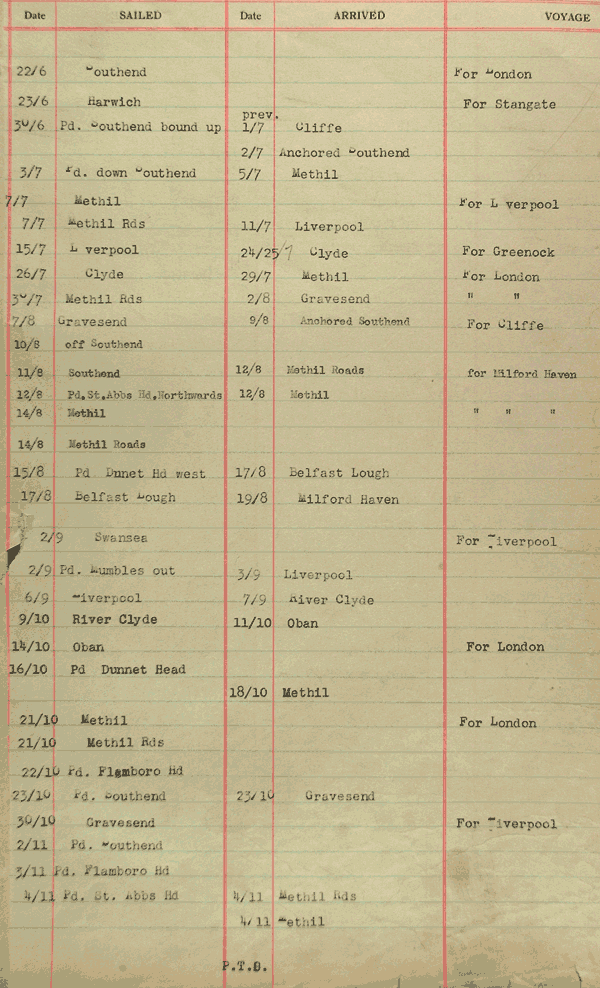 Date SAILED Date ARRIVED VOYAGE
22/6 Southend For London
23/6 Harwich For Stangate
prev.
30/6 Pd. Southend bound up 1/7 Cliffe
2/7 Anchored Southend
3/7 Pd. down Southend 5/7 Methil
7/7 Methil For L verpool
7/7 Methil Rds 11/7 Liverpool
15/7 L verpool 24/25/7 Clyde For Greenock
26/7 Clyde 29/7 Methil For London
30/7 Methil Rds 2/8 Gravesend " "
7/8 Gravesend 9/8 Anchored Southend For Cliffe
10/8 off Southend
11/8 Southend 12/8 Methil Roads for Milford Haven
12/8 Pd.St.Abbs Hd,Northwards 12/8 Methil
14/8 Methil " " "
14/8 Methil Roads
15/8 Pd Dunnet Hd west 17/8 Belfast Lough
17/8 Belfast Lough 19/8 Milford Haven
2/9 Swansea For Liverpool
2/9 Pd. Mumbles out 3/9 Liverpool
6/9 Liverpool 7/9 River Clyde
9/10 River Clyde 11/10 Oban
14/10 Oban For London
16/10 Pd Dunnet Head
18/10 Methil
21/10 Methil For London
21/10 Methil Rds
22/10 Pd. Flamboro Hd
23/10 Pd. Southend 23/10 Gravesend
30/10 Gravesend For Liverpool
2/11 Pd. Southend
3/11 Pd. Flamboro Hd
4/11 Pd. St. Abbs Hd 4/11 Methil Rds
4/11 Methil
P.T.O.